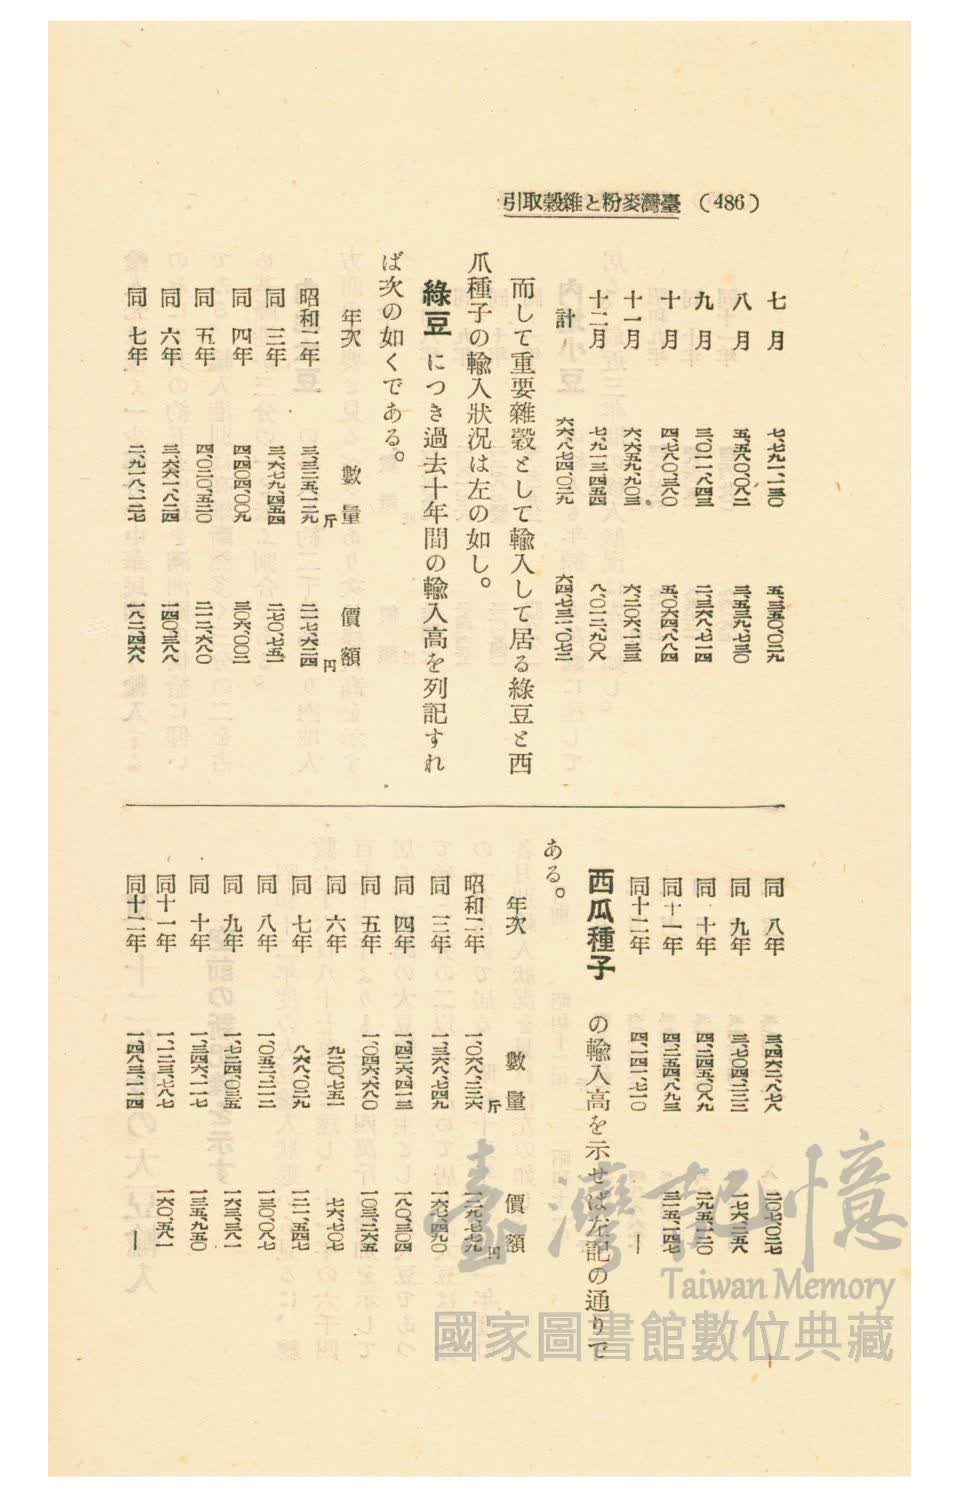 (486) 臺灣麥粉と雜穀取引
七月 七、七九一、一三〇 五、三五〇、〇二九
八月 五、五八〇、〇八二 三、五三九、七三〇
九月 三、〇一一、八四三 二、三六八、七一四
十月 四、七八〇、三八〇 五、〇六四、八八四
十一月 六、六五九、九〇三 六、二〇六、一三三
十二月 七、九一三、四五四 八、〇二二、九〇八
計 六六、八七四、〇二九 六四、七三一、〇七二
而して重要雜穀として輸入して居る綠豆と西
爪種子の輸入狀況は左の如し。
綠豆 につき過去十年間の輸入高を列記すれ
ば次の如くである。
年次 數量 價額
昭和二年 三、三三五、一二九斤 二一七、六二四円
同三年 三、六七九、四五四 二七〇、七五一
同四年 四、四〇四、〇〇九 三〇六、〇〇二
同五年 四、〇二〇、五二〇 二一二、六八〇
同六年 三、六六一、八二四 一四〇、三八八
同七年 二、九一八、一二七 一八二、四六八
同八年 三、四六二、八七八 二〇七、〇二七
同九年 三、七〇四、三三二 一七六、二五八
同十年 四、二四五、〇八九 二九五、一二〇
同十一年 四、二五四、八九三 三一五、一四七
同十二年 四、二四一、七一〇 ―
西瓜種子 の輸入高を示せば左記の通りで
ある。
年次 數量 價額
昭和二年 一、〇六八、三三六斤 一二九、七七九円
同三年 一、三六八、七四九 一六七、四九〇
同四年 一、四二六、四一三 一八〇、三〇四
同五年 一、〇四六、六八〇 一〇三、二六五
同六年 九二〇、七五一 七六、七〇七
同七年 八六八、〇二九 一二一、五四七
同八年 一、〇五二、二一二 一三〇、〇八七
同九年 一、七二四、〇三五 一六三、三八一
同十年 一、三四六、一一七 一三五、九五〇
同十一年 一、一二三、七八七 一六〇、五八一
同十二年 一、四八三、一一四 ―
臺灣記憶
Taiwan Memory
國家圖書館數位典藏